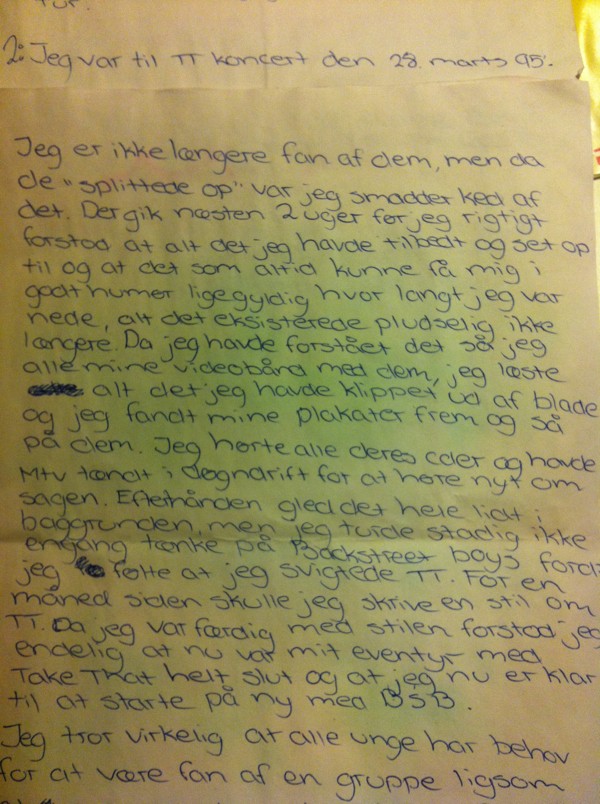 tur.
2: Jeg var til TT koncert den 28. marts 95'.
Jeg er ikke længere fan af dem, men da
de "splittede op" var jeg smadder ked af
det. Der gik næsten 2 uger før jeg rigtigt
forstod at alt det jeg havde tilbedt og set op
til og at det som altid kunne få mig i
godt humør ligegyldig hvor langt jeg var
nede, alt det eksisterede pludselig ikke
længere. Da jeg havde forstået det så jeg
alle mine videobånd med dem, jeg læste
alt det jeg havde klippet ud af blade
og jeg fandt mine plakater frem og så
på dem. Jeg hørte alle deres cder og havde
MTV tændt i døgndrift for at høre nyt om
sagen. Efterhånden gled det hele lidt i
baggrunden, men jeg turde stadig ikke
engang tænke på Backstreet boys fordi
jeg følte at jeg svigtede TT. For en
måned siden skulle jeg skrive en stil om
TT. Da jeg var færdig med stilen forstod jeg
endelig at nu var mit eventyr med
Take That helt slut og at jeg nu er klar
til at starte på ny med BSB.
Jeg tror virkelig at alle unge har behov
for at være fan af en gruppe ligsom